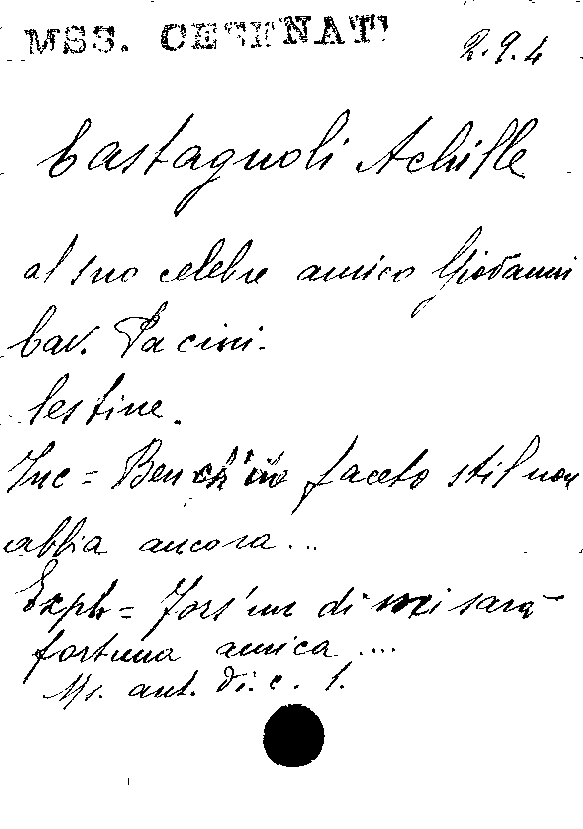 MSS. CESENATI
2.9.4
Castagnoli Achille
al suo celebre amico Giovanni
Cav. Pacini.
Sestine.
Inc = Ben ch'io faceto stil non
abbia ancora...
Expl = Fors'un dì mi sarà
fortuna amica ....
Ms. aut. di c. 1.